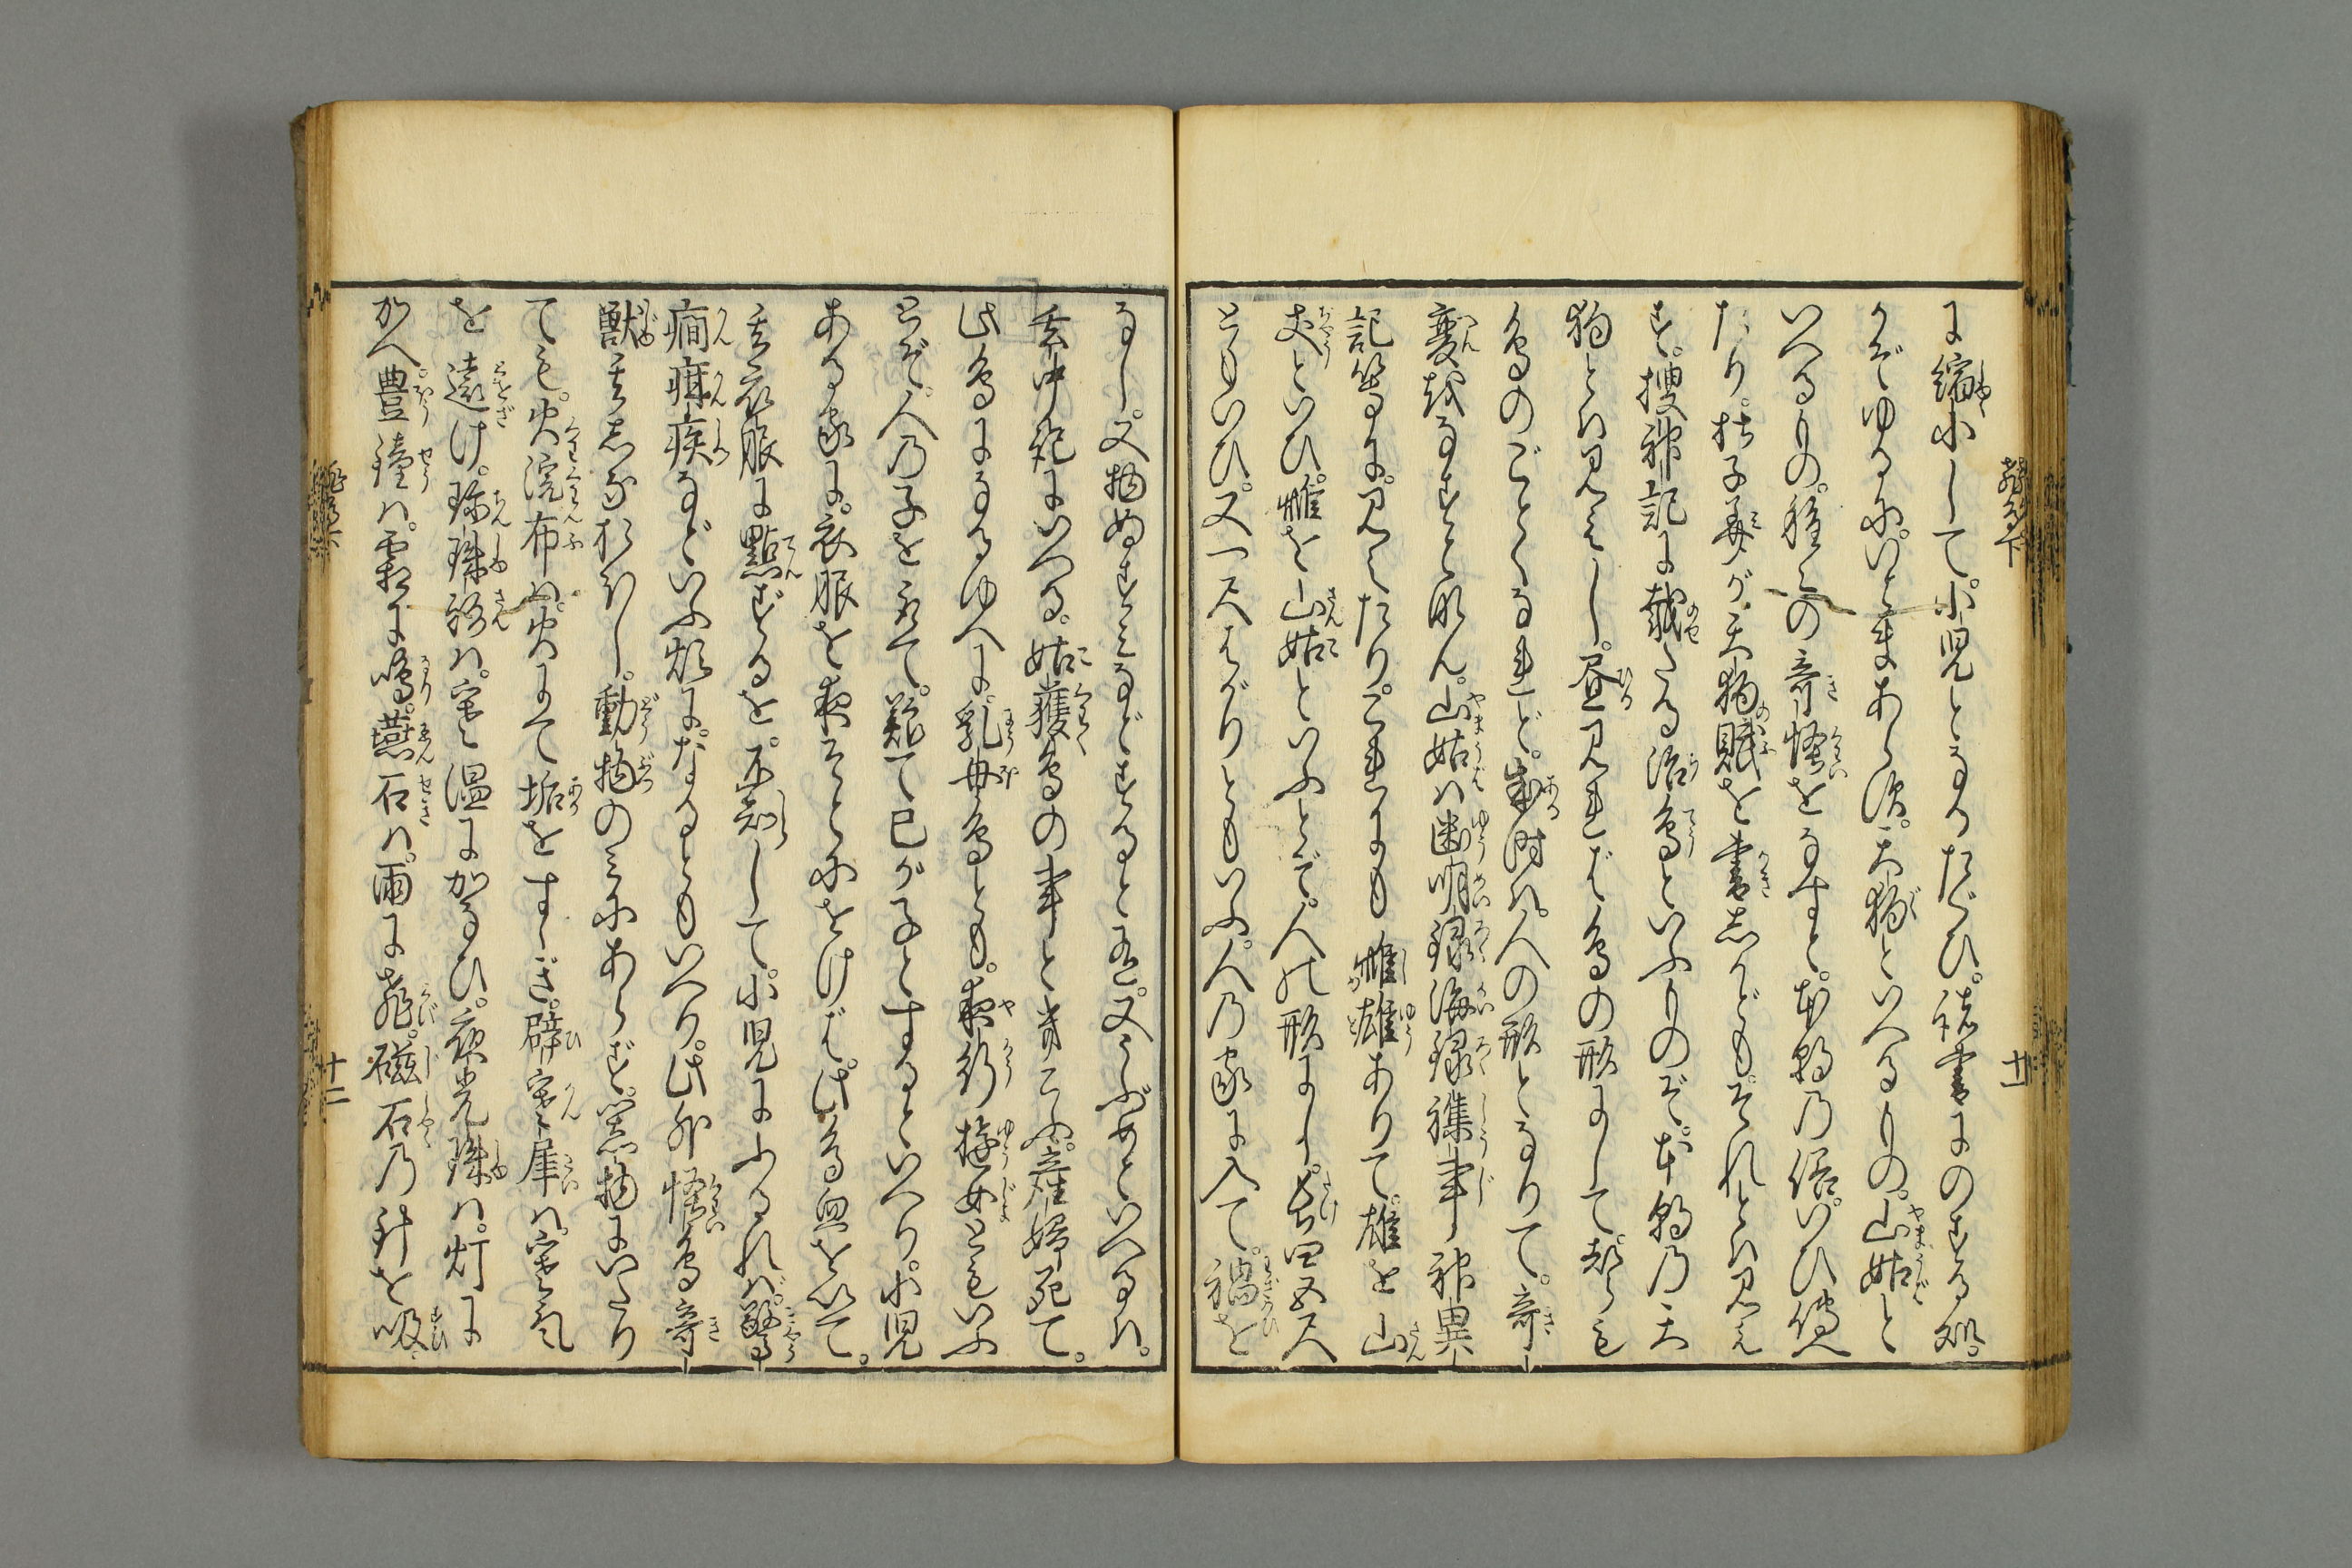 に縮小して。小児となるたぐひ。諸書にのする処。
かぞゆるに。いとまあらず。天狗といへるもの。山姑と
いへるもの。種々の奇怪をなすと。本朝の俗。いひ伝へ
たり。杜子美が天狗賦を書しかども。それとは見え
ず。捜神記に載たる治鳥といふものぞ。本朝の天
狗とは見えし。昼見れば鳥の形にして。あしも
鳥のごとくなれど。或時は。人の形となりて。奇
変を なすとなん。山姑は幽明録海録雑事神異
記等に。見えたり。これにも雌雄ありて。雄を山
丈といひ。雌を山姑といふとぞ。人の形にし。長四五尺
ともいひ。又一尺ばかりともいふ。人の家に入て。禍を
なし。又物ぬすみなどすると云。又うぶめといへるは。
玄中記にいへる。姑獲鳥の事と見こふ。産婦死て。
此鳥になるゆへに。乳母鳥とも。夜行遊女ともいふ
とぞ。人の子をとりて。養て己が子とするといへり。小児
ある家に。衣服を夜そとにをけば。此鳥血を以て。
其衣服に點ずるを。不知して。小児にふるれば。驚
癇疳疾などいふ煩に。なるともいへり。此外怪鳥奇
獣其しな おほし。動物のみにあらず。器物にいたり
ても。火浣布は。火にて垢をすゝぎ。辟寒犀は。寒気
を遠ざけ。珍珠 は。寒温に加なひ。夜光珠は。灯に
かへ。豊鐘は。霜に鳴。燕石は。雨に飛。磁石の針を吸。
飛鳥下
十一
十二